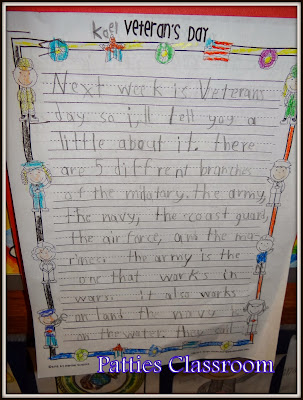 Kael Veteran's Day
Next week is Veterans
day so i,ll tell you a
little about it. there
are 5 different branches
of the milatary. the army,
the navy, the coast guard,
the air force, and the ma-
rines. the army is the
one that works in
wars. it also works
on land the navy is
on the water. they sail
Patties Classroom